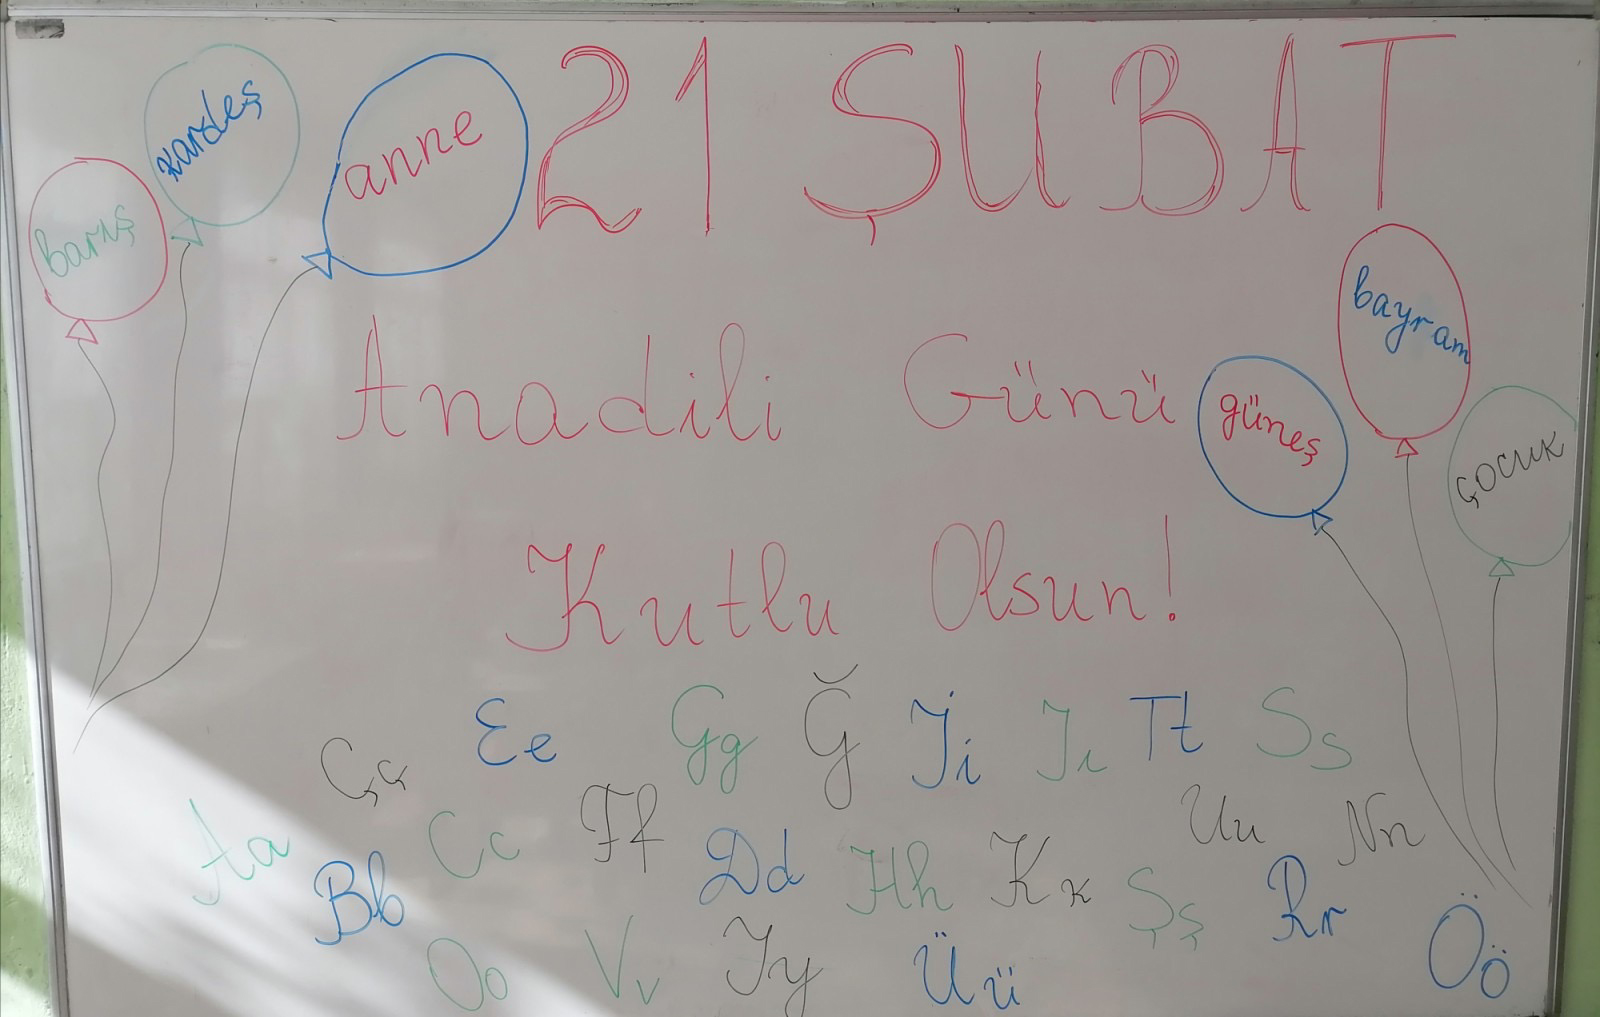 21 ŞUBAT
Anadili Günü
Kutlu Olsun!
barış
kardeş
anne
güneş
bayram
çocuk
Çç Ee Gg Ğ İi Iı Tt Ss
Aa Bb Cc Ff Dd Hh Kк Şş Uu Rr Nn
Oo Vv Yy Üü Öö